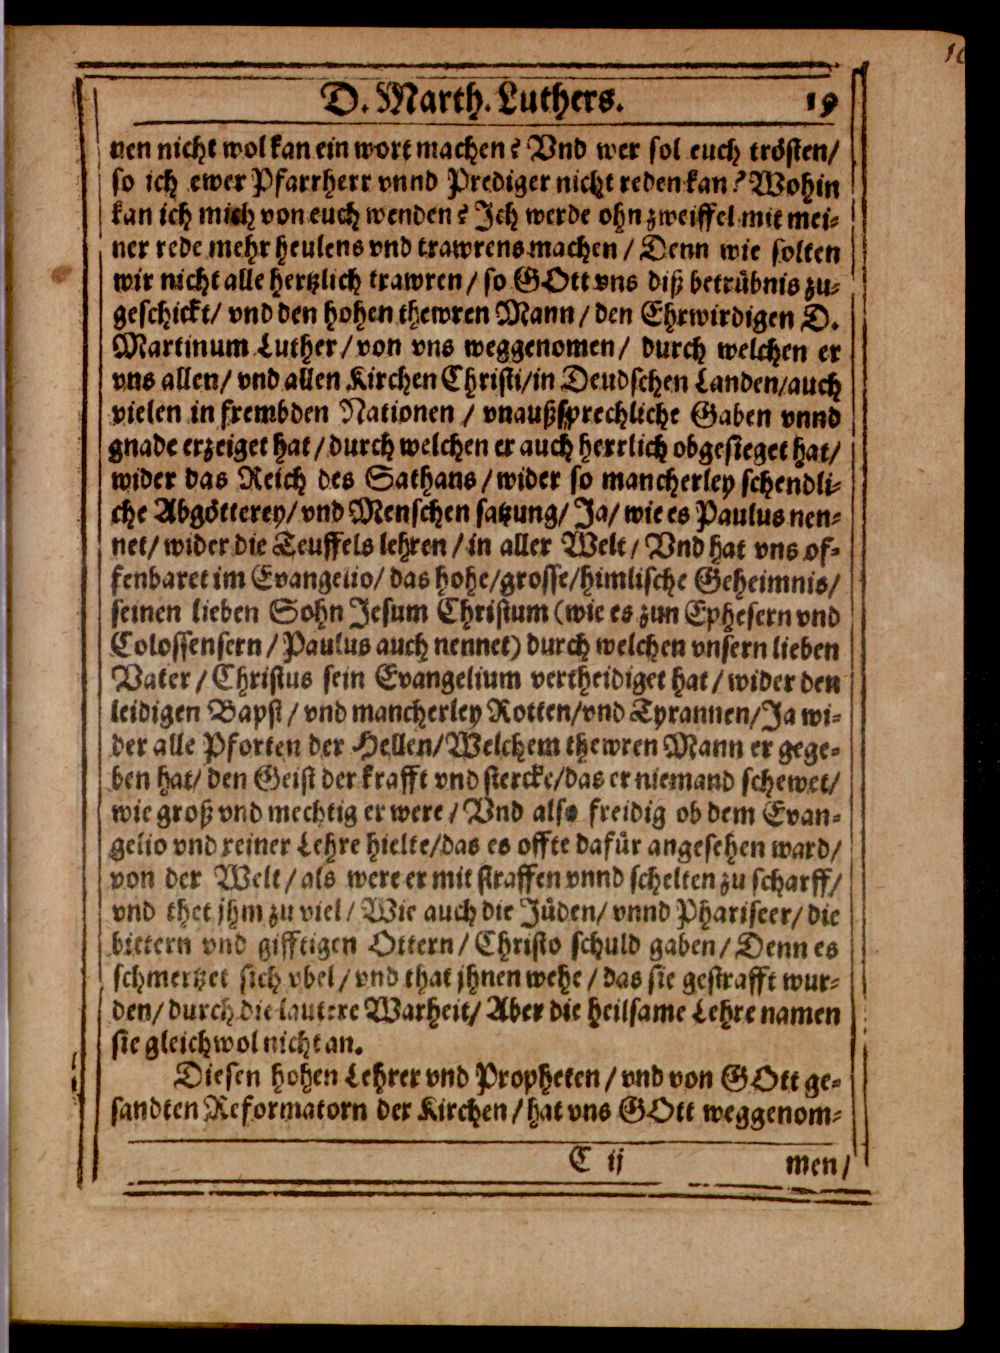 D. Marth. Luthers. 19
nen nicht wol kan ein wort machen? Vnd wer sol euch trösten/
so ich ewer Pfarrherr vnnd Prediger nicht reden kan? Wohin
kan ich mich von euch wenden? Jch werde ohn zweiffel mit mei-
ner rede mehr heulens vnd trawrens machen / Denn wie solten
wir nicht alle hertzlich trawren / so GOtt vns diß betrübnis zu-
geschickt/ vnd den hohen thewren Mann / den Ehrwirdigen D.
Martinum Luther / von vns weggenomen / durch welchen er
vns allen/ vnd allen Kirchen Christi/in Deudschen Landen/auch
vielen in frembden Nationen / vnaußsprechliche Gaben vnnd
gnade erzeiget hat / durch welchen er auch herrlich obgesieget hat/
wider das Reich des Sathans / wider so mancherley schendli-
che Abgötterey/ vnd Menschen satzung/ Ja/ wie es Paulus nen-
net/ wider die Teuffels lehren / in aller Welt / Vnd hat vns of-
fenbaret im Evangelio/ das hohe/grosse/himlische Geheimnis/
seinen lieben Sohn Jesum Christum (wie es zun Ephesern vnd
Colossensern / Paulus auch nennet) durch welchen vnsern lieben
Vater / Christus sein Evangelium vertheidiget hat / wider den
leidigen Bapst / vnd mancherley Rotten/vnd Tyrannen/Ja wi-
der alle Pforten der Hellen/Welchem thewren Mann er gege-
ben hat/ den Geist der krafft vnd stercke/das er niemand schewet/
wie groß vnd mechtig er were / Vnd also freidig ob dem Evan-
gelio vnd reiner Lehre hielte/das es offte dafür angesehen ward/
von der Welt / als were er mit straffen vnnd schelten zu scharff/
vnd thet jhm zu viel / Wie auch die Jüden/ vnnd Phariseer/ die
bittern vnd gifftigen Ottern / Christo schuld gaben / Denn es
schmertzet sich vbel / vnd that jhnen wehe / das sie gestrafft wur-
den/ durch die lautere Warheit/ Aber die heilsame Lehre namen
sie gleichwol nicht an.
Diesen hohen Lehrer vnd Propheten / vnd von GOtt ge-
sandten Reformatorn der Kirchen / hat vns GOtt weggenom-
C ij men/